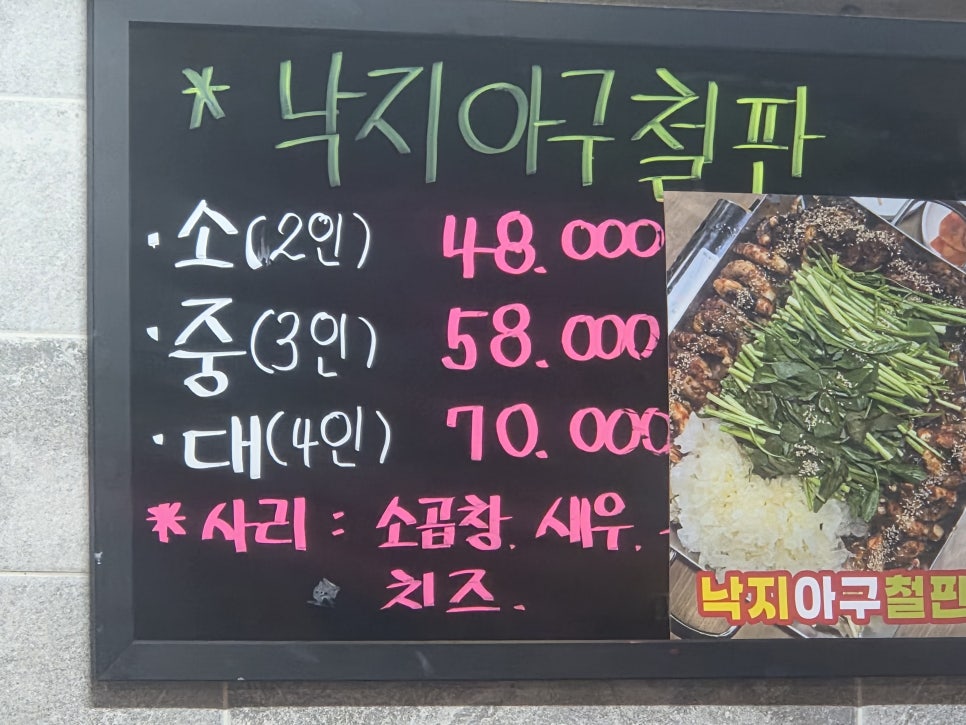 * 낙지아구철판
· 소(2인) 48.000
· 중(3인) 58.000
· 대(4인) 70.000
* 사리 : 소곱창. 새우.
치즈.
낙지아구철판